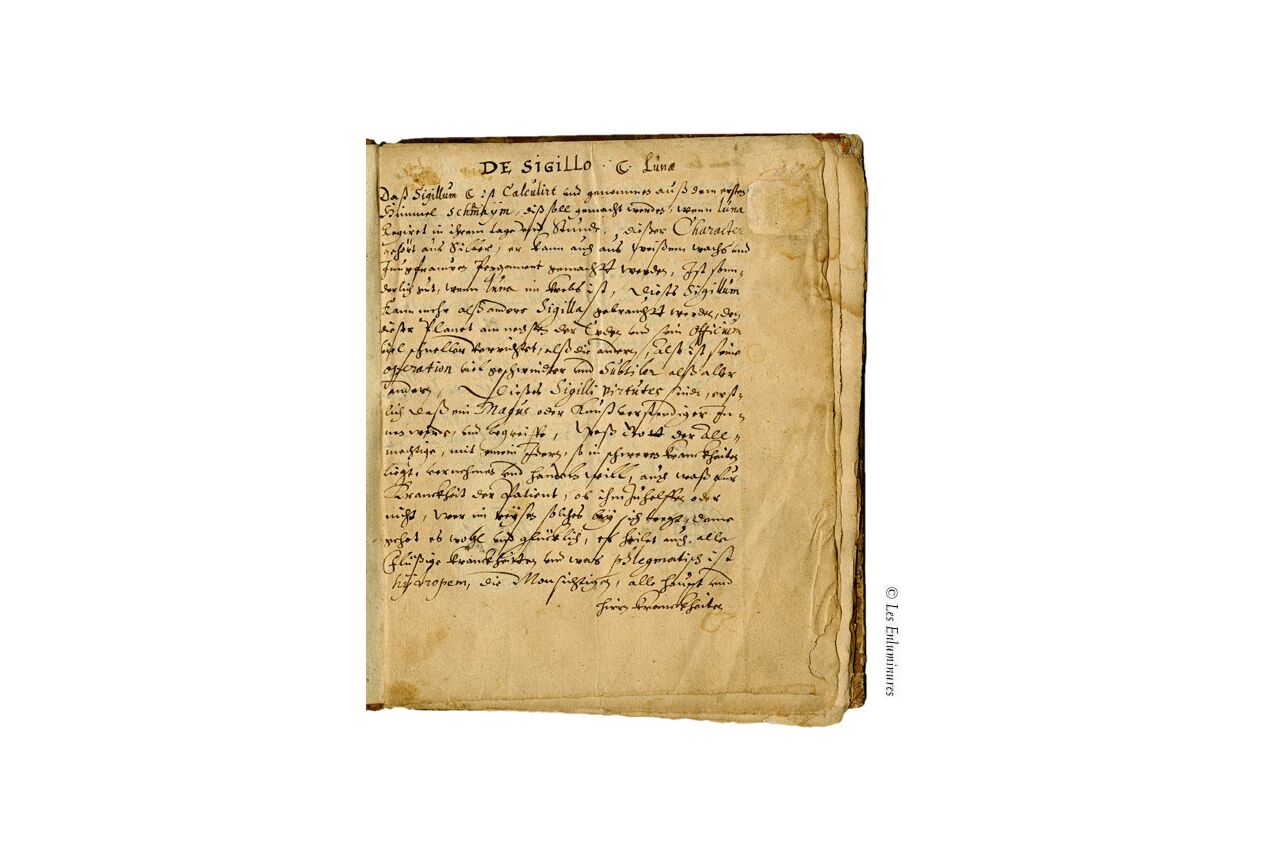 DE SIGILLO ☾ Lunæ
Daß Sigillum ☾ ist Calculirt und genommen auß dem ersten
Himmel Schmaÿm, diß soll gemacht werden, wenn Luna
Regiret in ihrem tage und Stunde, dießer Character
gehört aus Silber, er kann auch aus weißem wachs und
Jungfrauwen Pergament gemacht werden, Ist son„
derlich gut, wenn Luna im krebs ist, Dieses Sigillum
kann mehr alß andere Sigilla gebraucht werden, den
dießer Planet am nechsten der Erden und sein Officium
viel schneller verrichtet, alß die andern, Alß ist seine
opperation viel geschwindter und Subtiler alß aller
andern, Dieses Sigilli Virtutes sind, erst„
lich daß ein Magus oder Kunstverstendiger In„
nen werde, und begreiffe, Waß Gott der All„
mechtige, mit einem Jdern, so in schweren kranckheiten
liegt, vernehmen und handeln will, auch waß für
Kranckheit der Patient, ob ihm zu helffen oder
nicht, Wer im reÿsen solches beÿ sich tregt, deme
gehet es wohl und glücklich, es heilet auch alle
Flüßige kranckheitten und was phlegmatisch ist
hÿdropem, die Monsichtigen, alle haupt und
hirn kranckheiten
© Les Enluminures